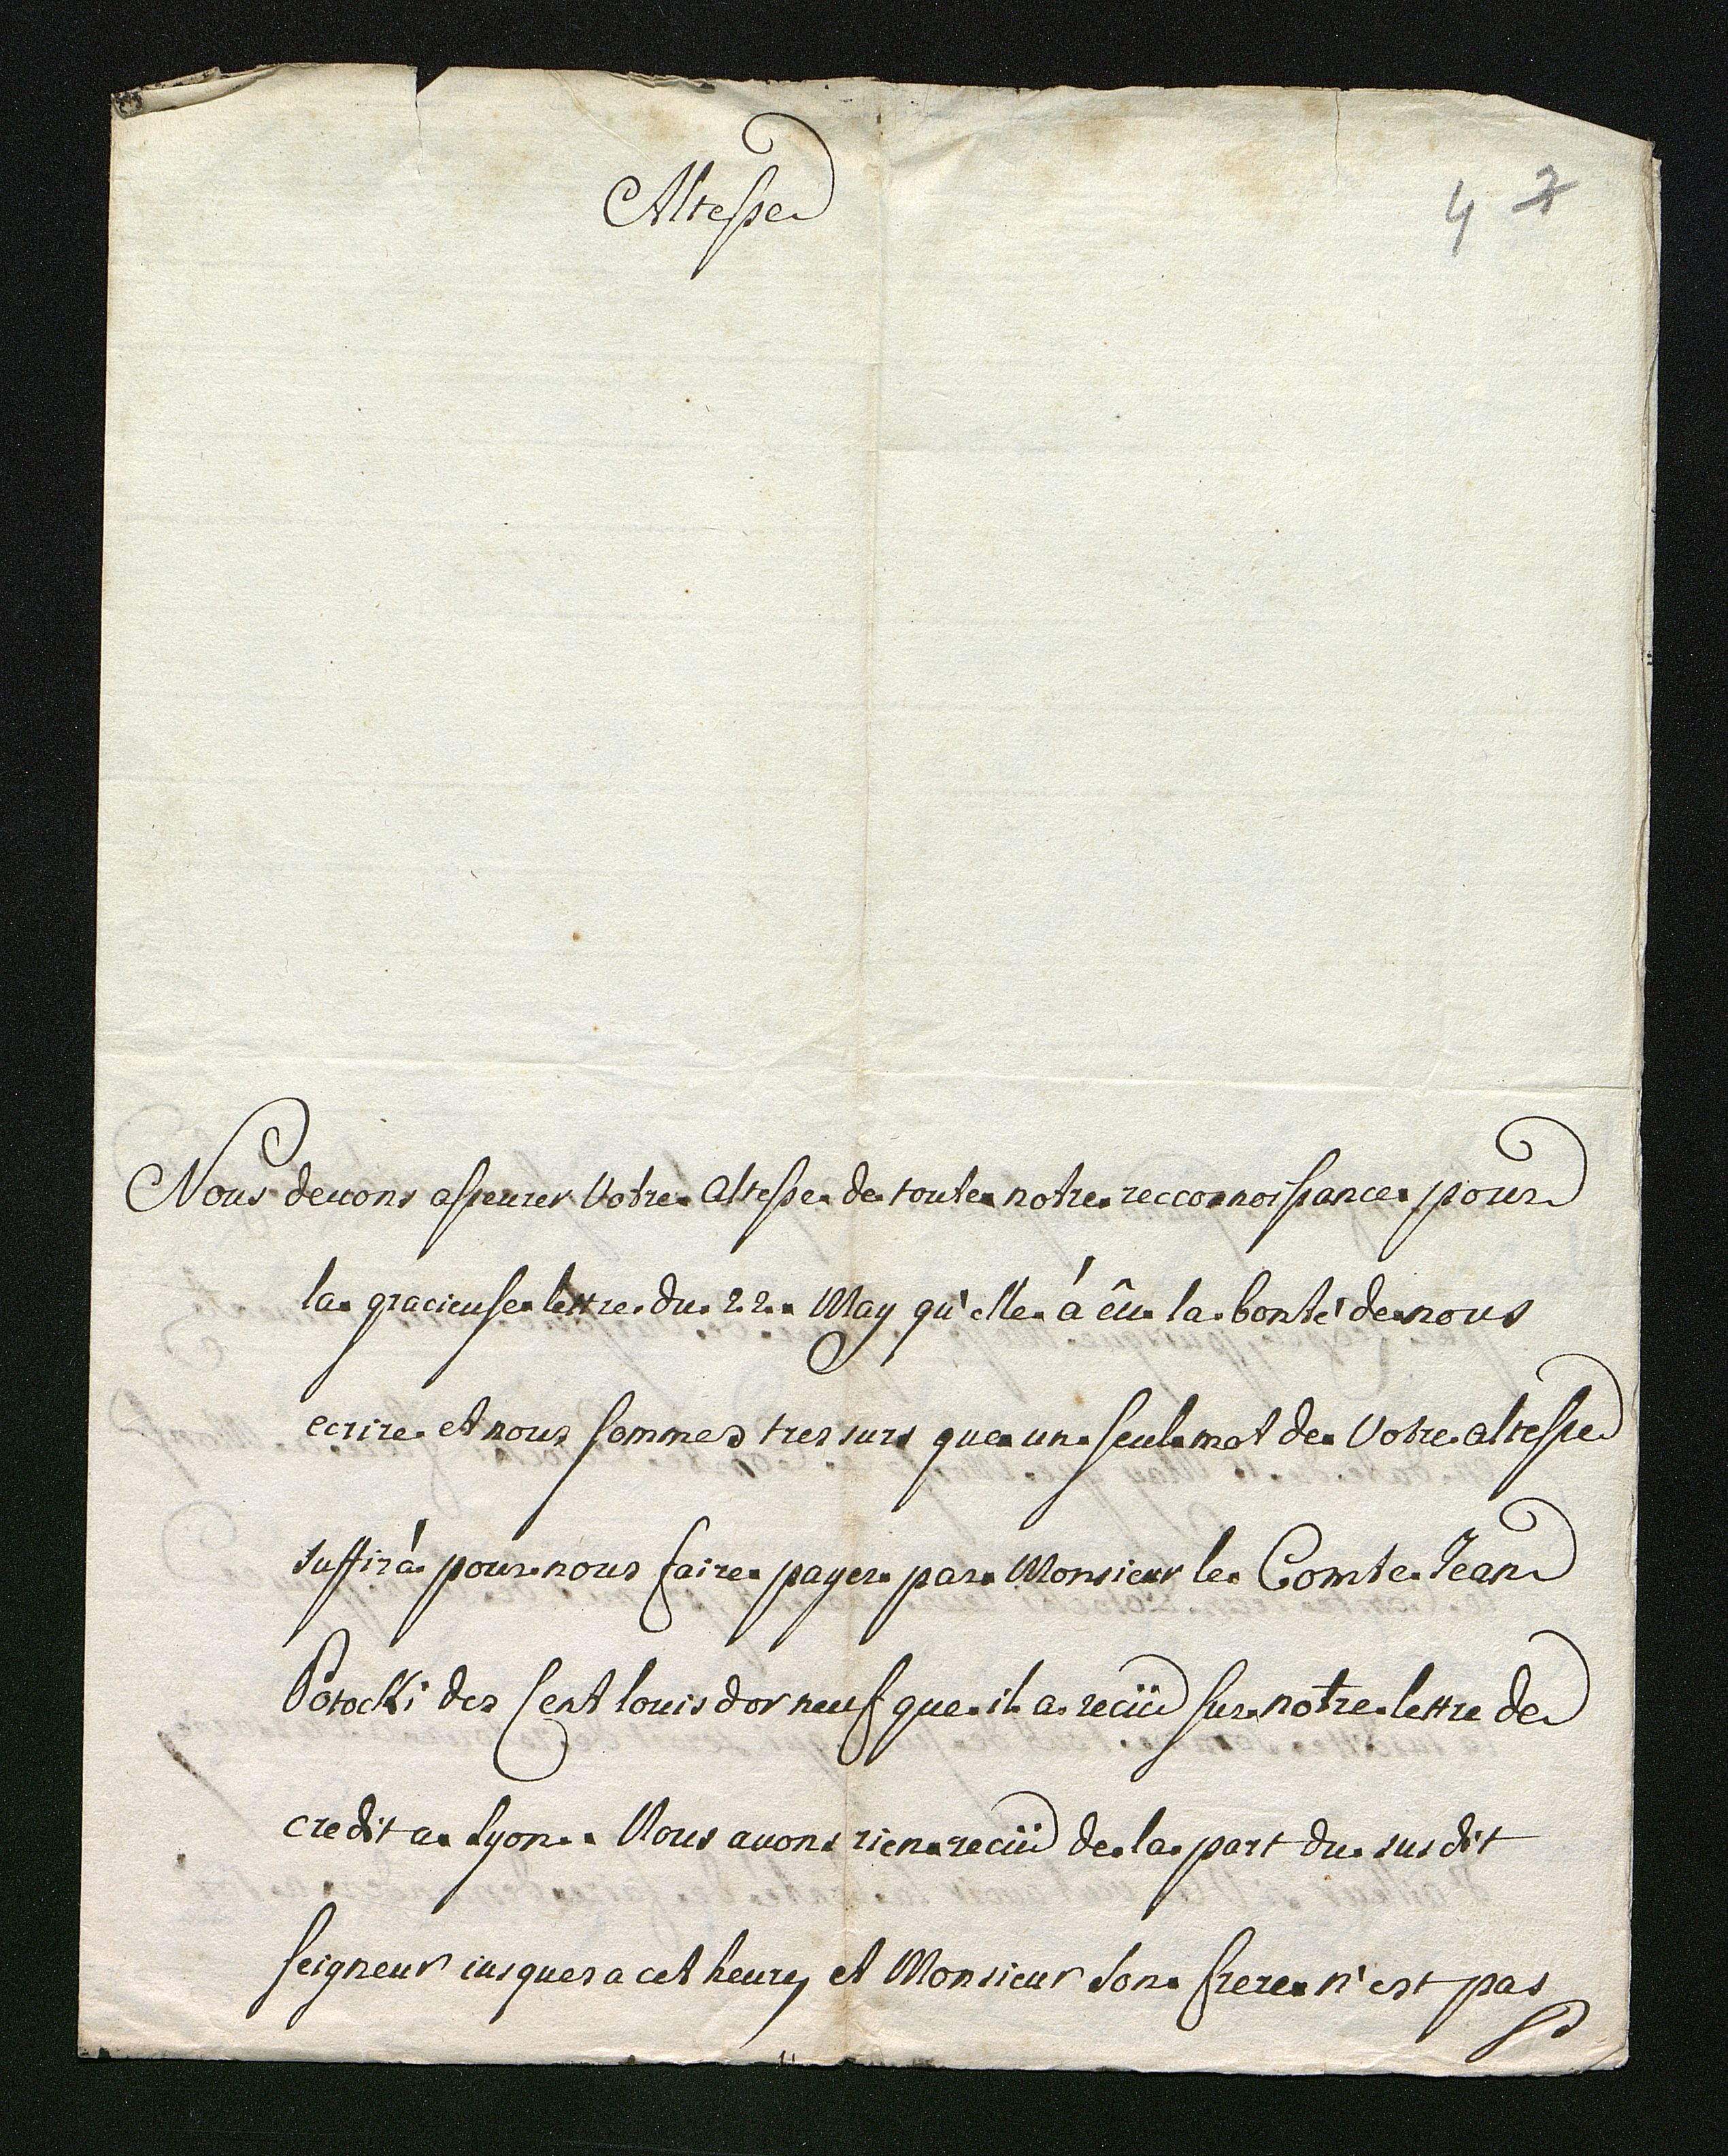 Altesse
4 7
Nous deuons asseurer Votre Altesse de toute notre recconnoissance pour
la gracieuse lettre du 22 May qu'elle á êu la bonté de nous
ecrire et nous sommes tres surs que un seul mot de Votre altesse
suffirá pour nous faire payer par Monsieur le Comte Jean
Potocki des Cent louis d or neuf que il a reciü sur notre lettre de
credit a Lyon. Nous auons rien reciü de la part du susdit
Seigneur iusques a cet heure, et Monsieur Son frere n'est pas